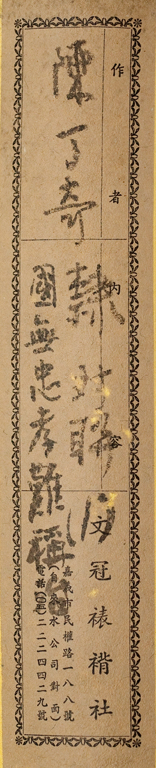 作者
陳丁奇
內容
隸對聯
國無忠孝難稱
文冠裱褙社
嘉義市民權路一八八號
（自來水公司對面）
電話(05)二二二四四二九號